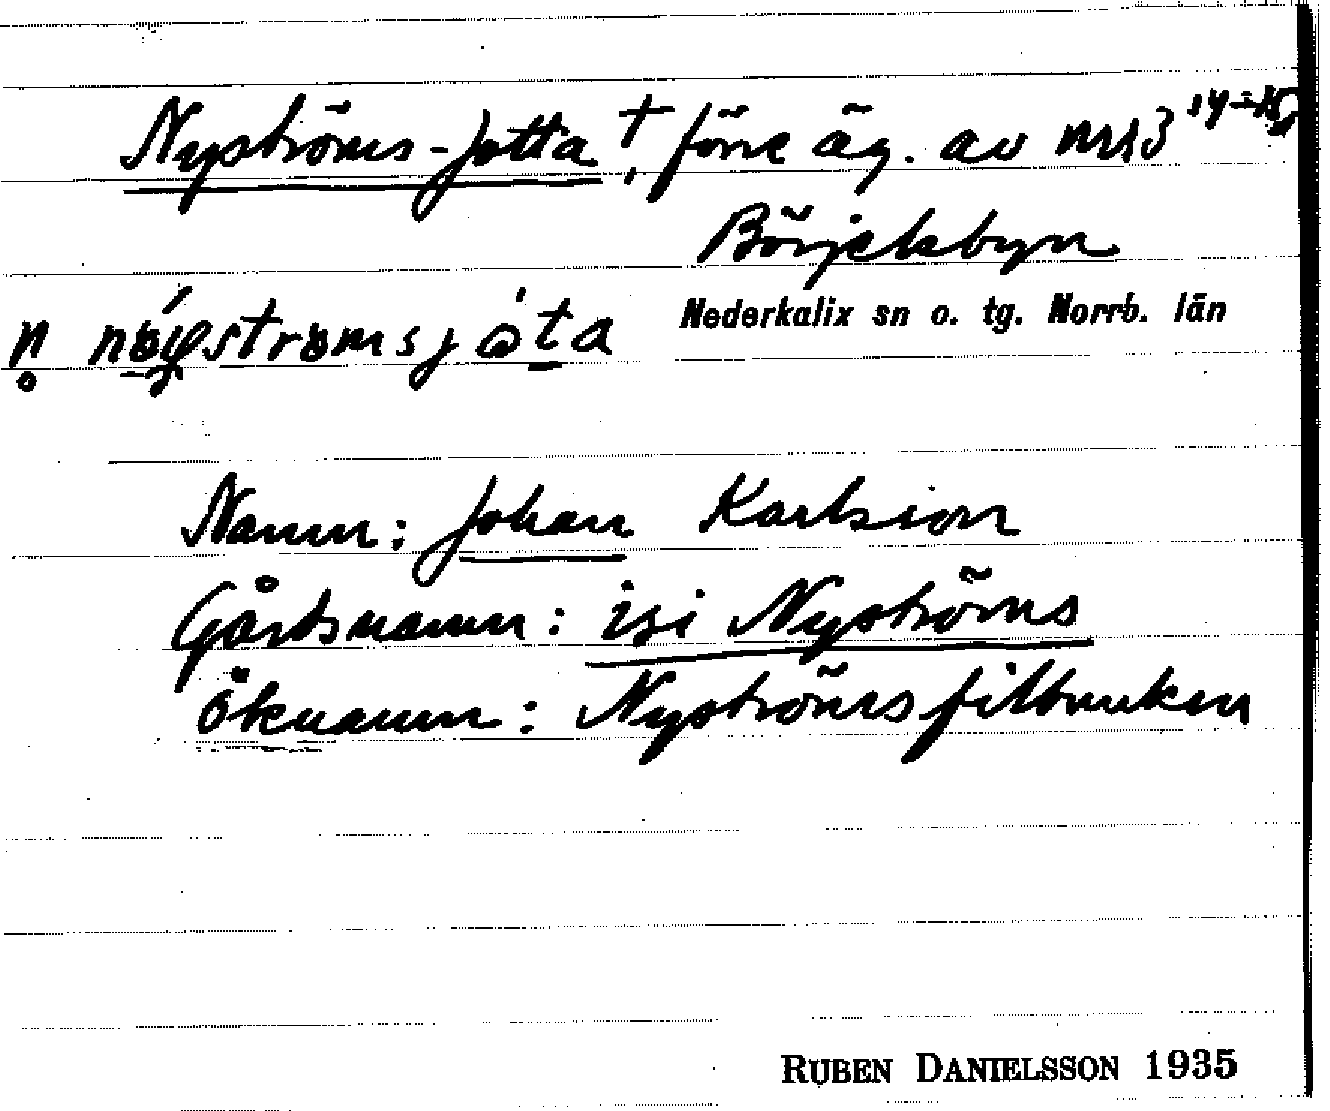 Nyströms-Jotta †, förre äg. av nr 13 14-15,
Börjelsbyn
Nederkalix sn o. tg. Norrb. län
Namn: Johan Karlsson
Gårdsnamn: isi Nyströms
Öknamn: Nyströmsfilbunken
RUBEN DANIELSSON 1935